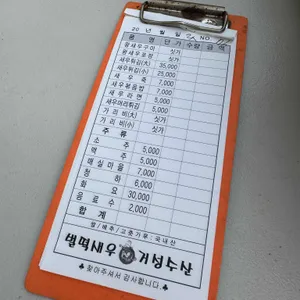 20 년 월 일 NO.
품 명 단 가 수량 금 액
왕새우구이 싯가
왕새우포장 싯가
새우튀김(大) 35,000
새우튀김(小) 25,000
새 우 죽 7,000
새우볶음밥 7,000
새 우 라 면 5,000
새우머리튀김 5,000
가 리 비 (大) 싯가
가 리 비 (小) 싯가
주 류
소 주 5,000
맥 주 5,000
매실마을 7,000
청 하 6,000
화 요 30,000
음 료 수 2,000
합 계
쌀/배추/고춧가루 : 국내산
펄떡새우 거성수산
♣ 찾아주셔서 감사합니다. ♣